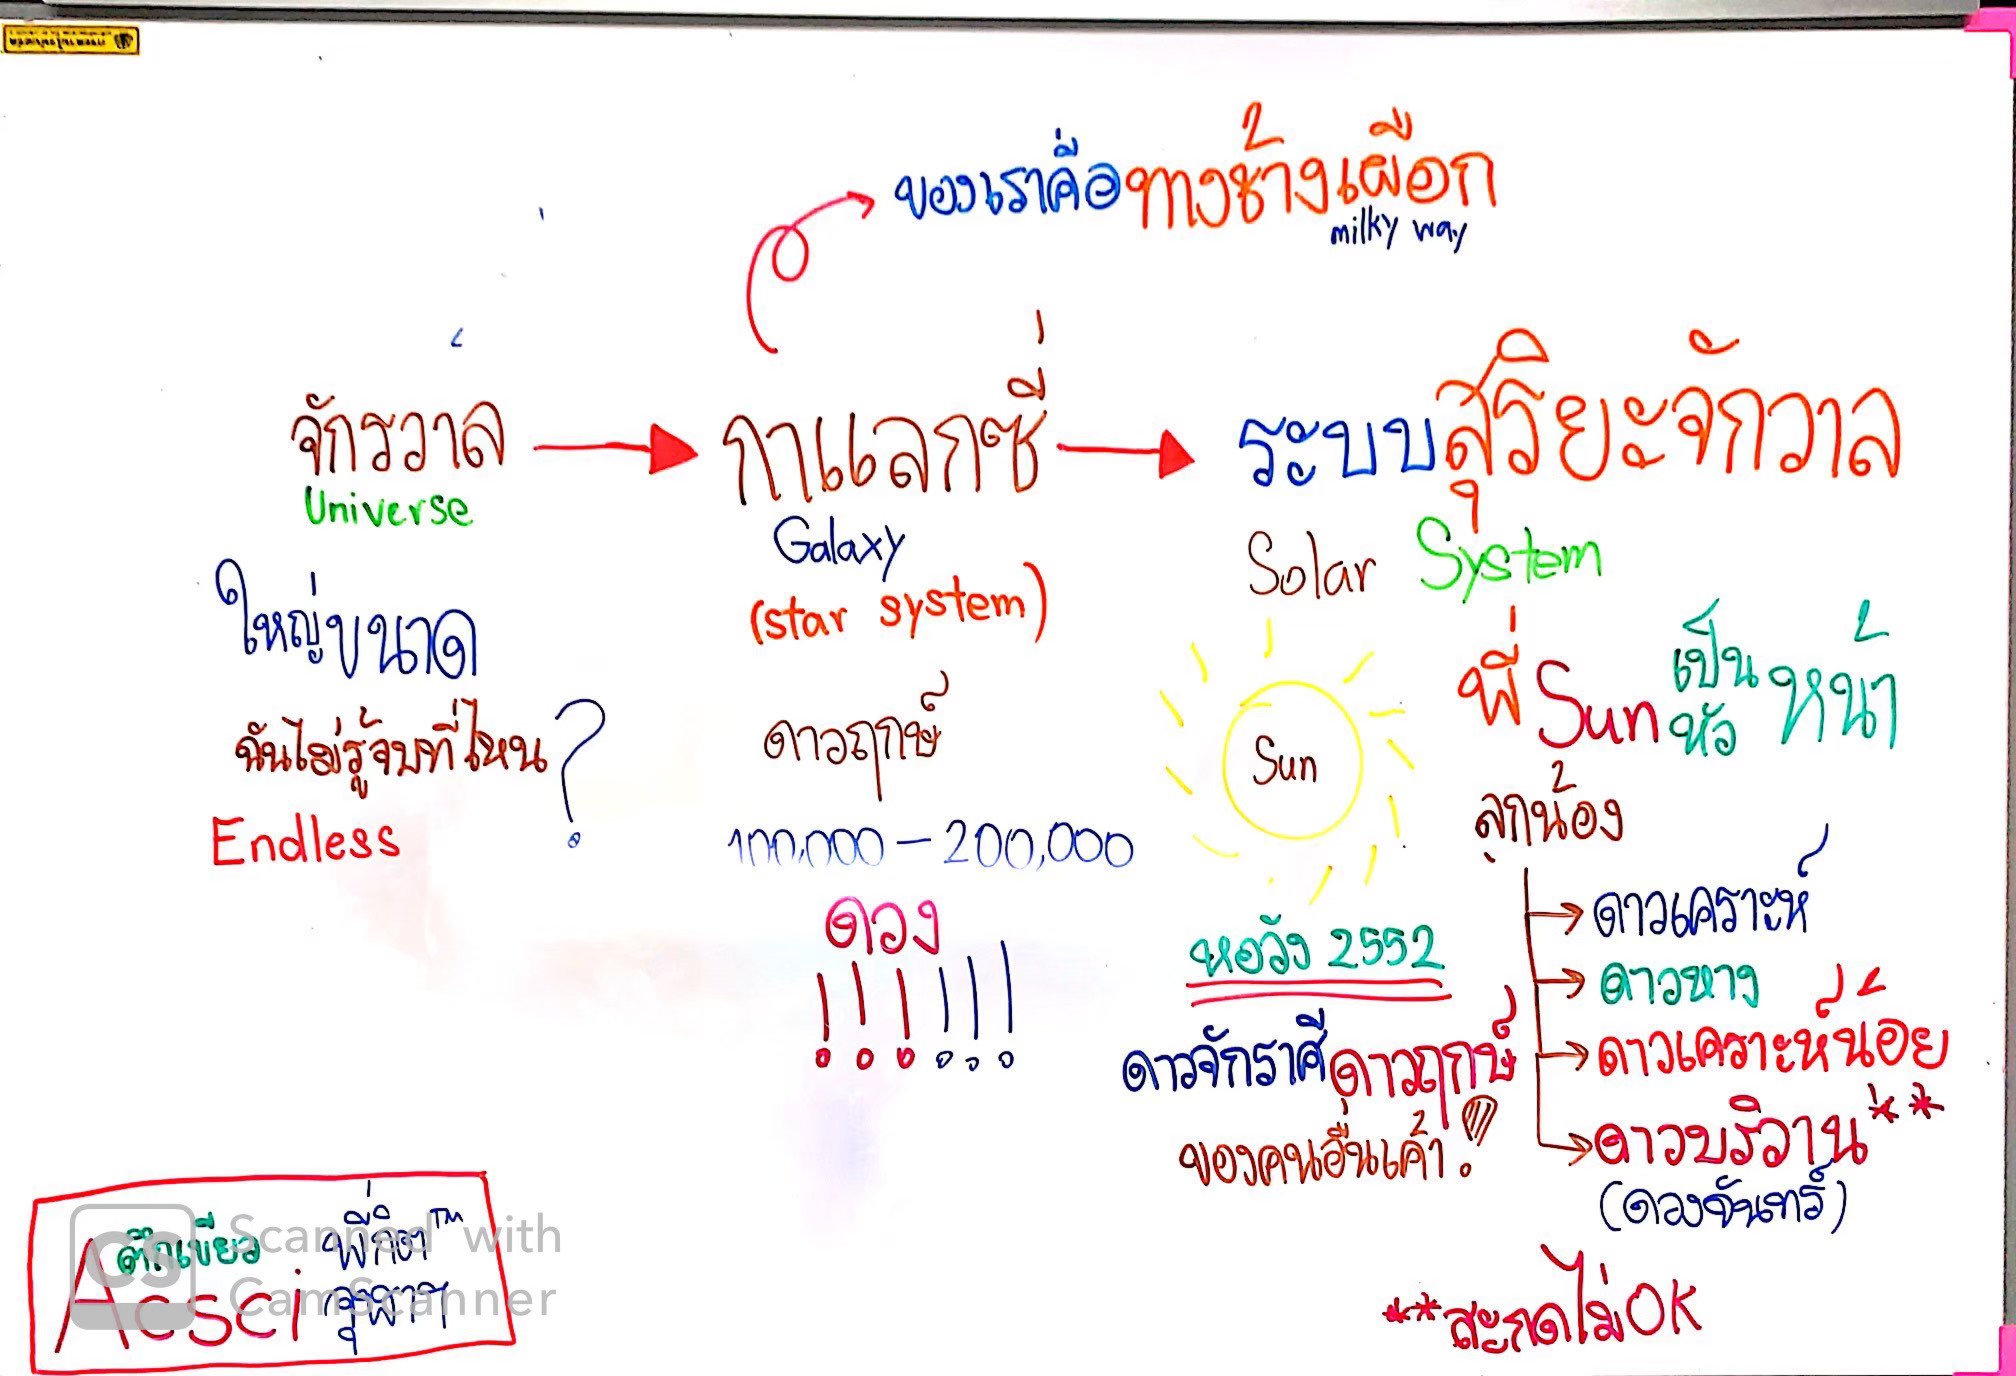 ของเราคือทางช้างเผือก
milky way
จักรวาล
Universe
ใหญ่ขนาด
ฉันไม่รู้จบที่ไหน?
Endless
กาแลกซี่
Galaxy
(star system)
ดาวฤกษ์
100,000 - 200,000
ดวง
!!!!!!
ระบบสุริยะจักวาล
Solar System
Sun
พี่ Sun เป็นหัวหน้า
ลูกน้อง
ดาวเคราะห์
ดาวหาง
ดาวเคราะห์น้อย
ดาวบริวาน**
(ดวงจันทร์)
หอวัง 2552
ดาวจักราศีดาวฤกษ์
ของคนอื่นเค้า!
**สะกดไม่OK
ตึกเขียว
Acsci
พี่กิต™
จุฬาฯ
CS
Scanned with
CamScanner